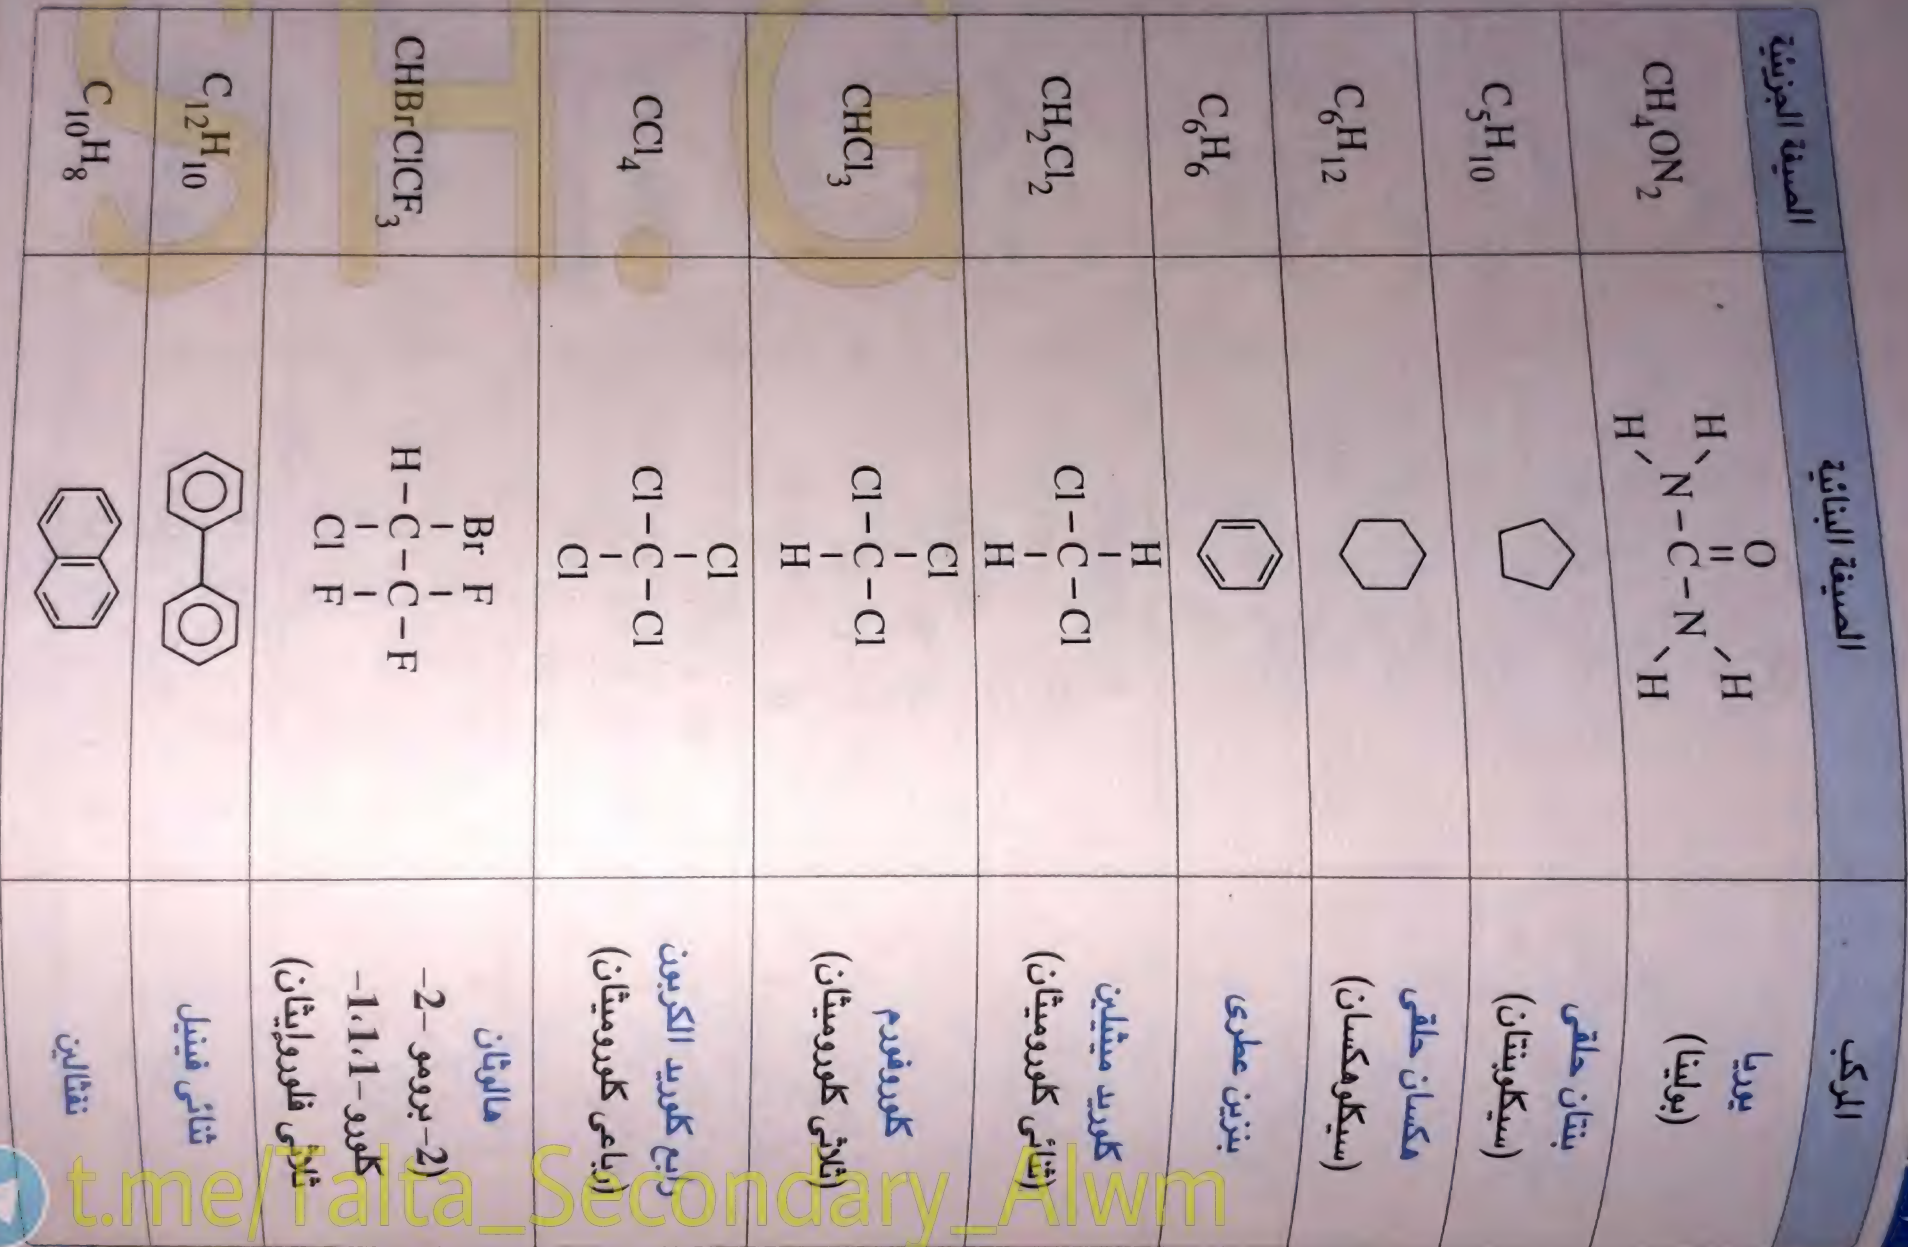 المركب الصيغة البنائية الصيغة الجزيئية
يوريا
(بولينا)
O
H H
N – C – N
H H
CH4ON2
بنتان حلقى
(سيكلوبنتان)
C5H10
هكسان حلقى
(سيكلوهكسان)
C6H12
بنزين عطرى
C6H6
كلوريد ميثيلين
(ثنائى كلوروميثان)
H
Cl – C – Cl
H
CH2Cl2
كلوروفورم
(ثلاثى كلوروميثان)
Cl
Cl – C – Cl
H
CHCl3
رابع كلوريد الكربون
(رباعى كلوروميثان)
Cl
Cl – C – Cl
Cl
CCl4
هالوثان
(2-برومو -2-
كلورو-1،1،1-
ثلاثى فلوروإيثان)
Br F
H – C – C – F
Cl F
CHBrClCF3
ثنائى فينيل
C12H10
نفثالين
C10H8
G
H.
S
t.me/Talta_Secondary_Alwm